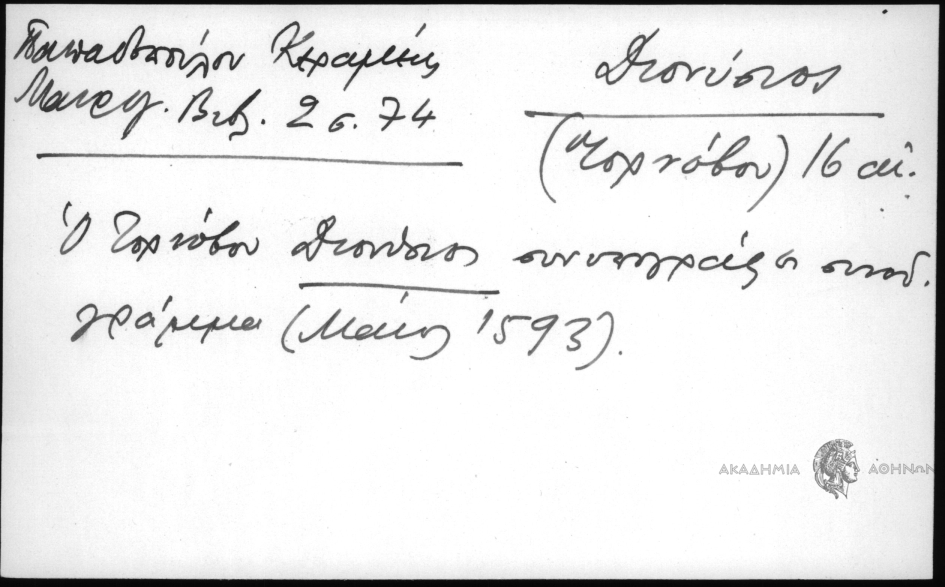 Παπαδοπούλου Κεραμέως
Μαυρογ. Βιβ. 2 σ. 74
Διονύσιος
(Τορνόβου) 16 αἰ.
Ὁ Τορνόβου Διονύσιος συνυπογράφει συνοδ.
γράμμα (Μάιος 1593).
ΑΚΑΔΗΜΙΑ ΑΘΗΝΩΝ